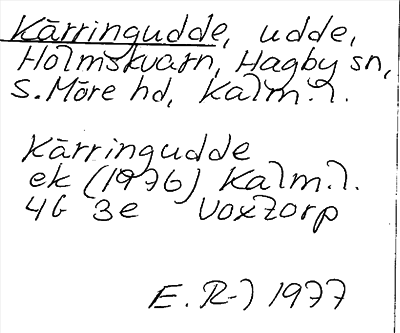 Kärringudde, udde,
Holmskvarn, Hagby sn,
S. Möre hd, Kalm. l.
Kärringudde
ek (1976) Kalm. l.
4G 3e Voxtorp
E. R-) 1977